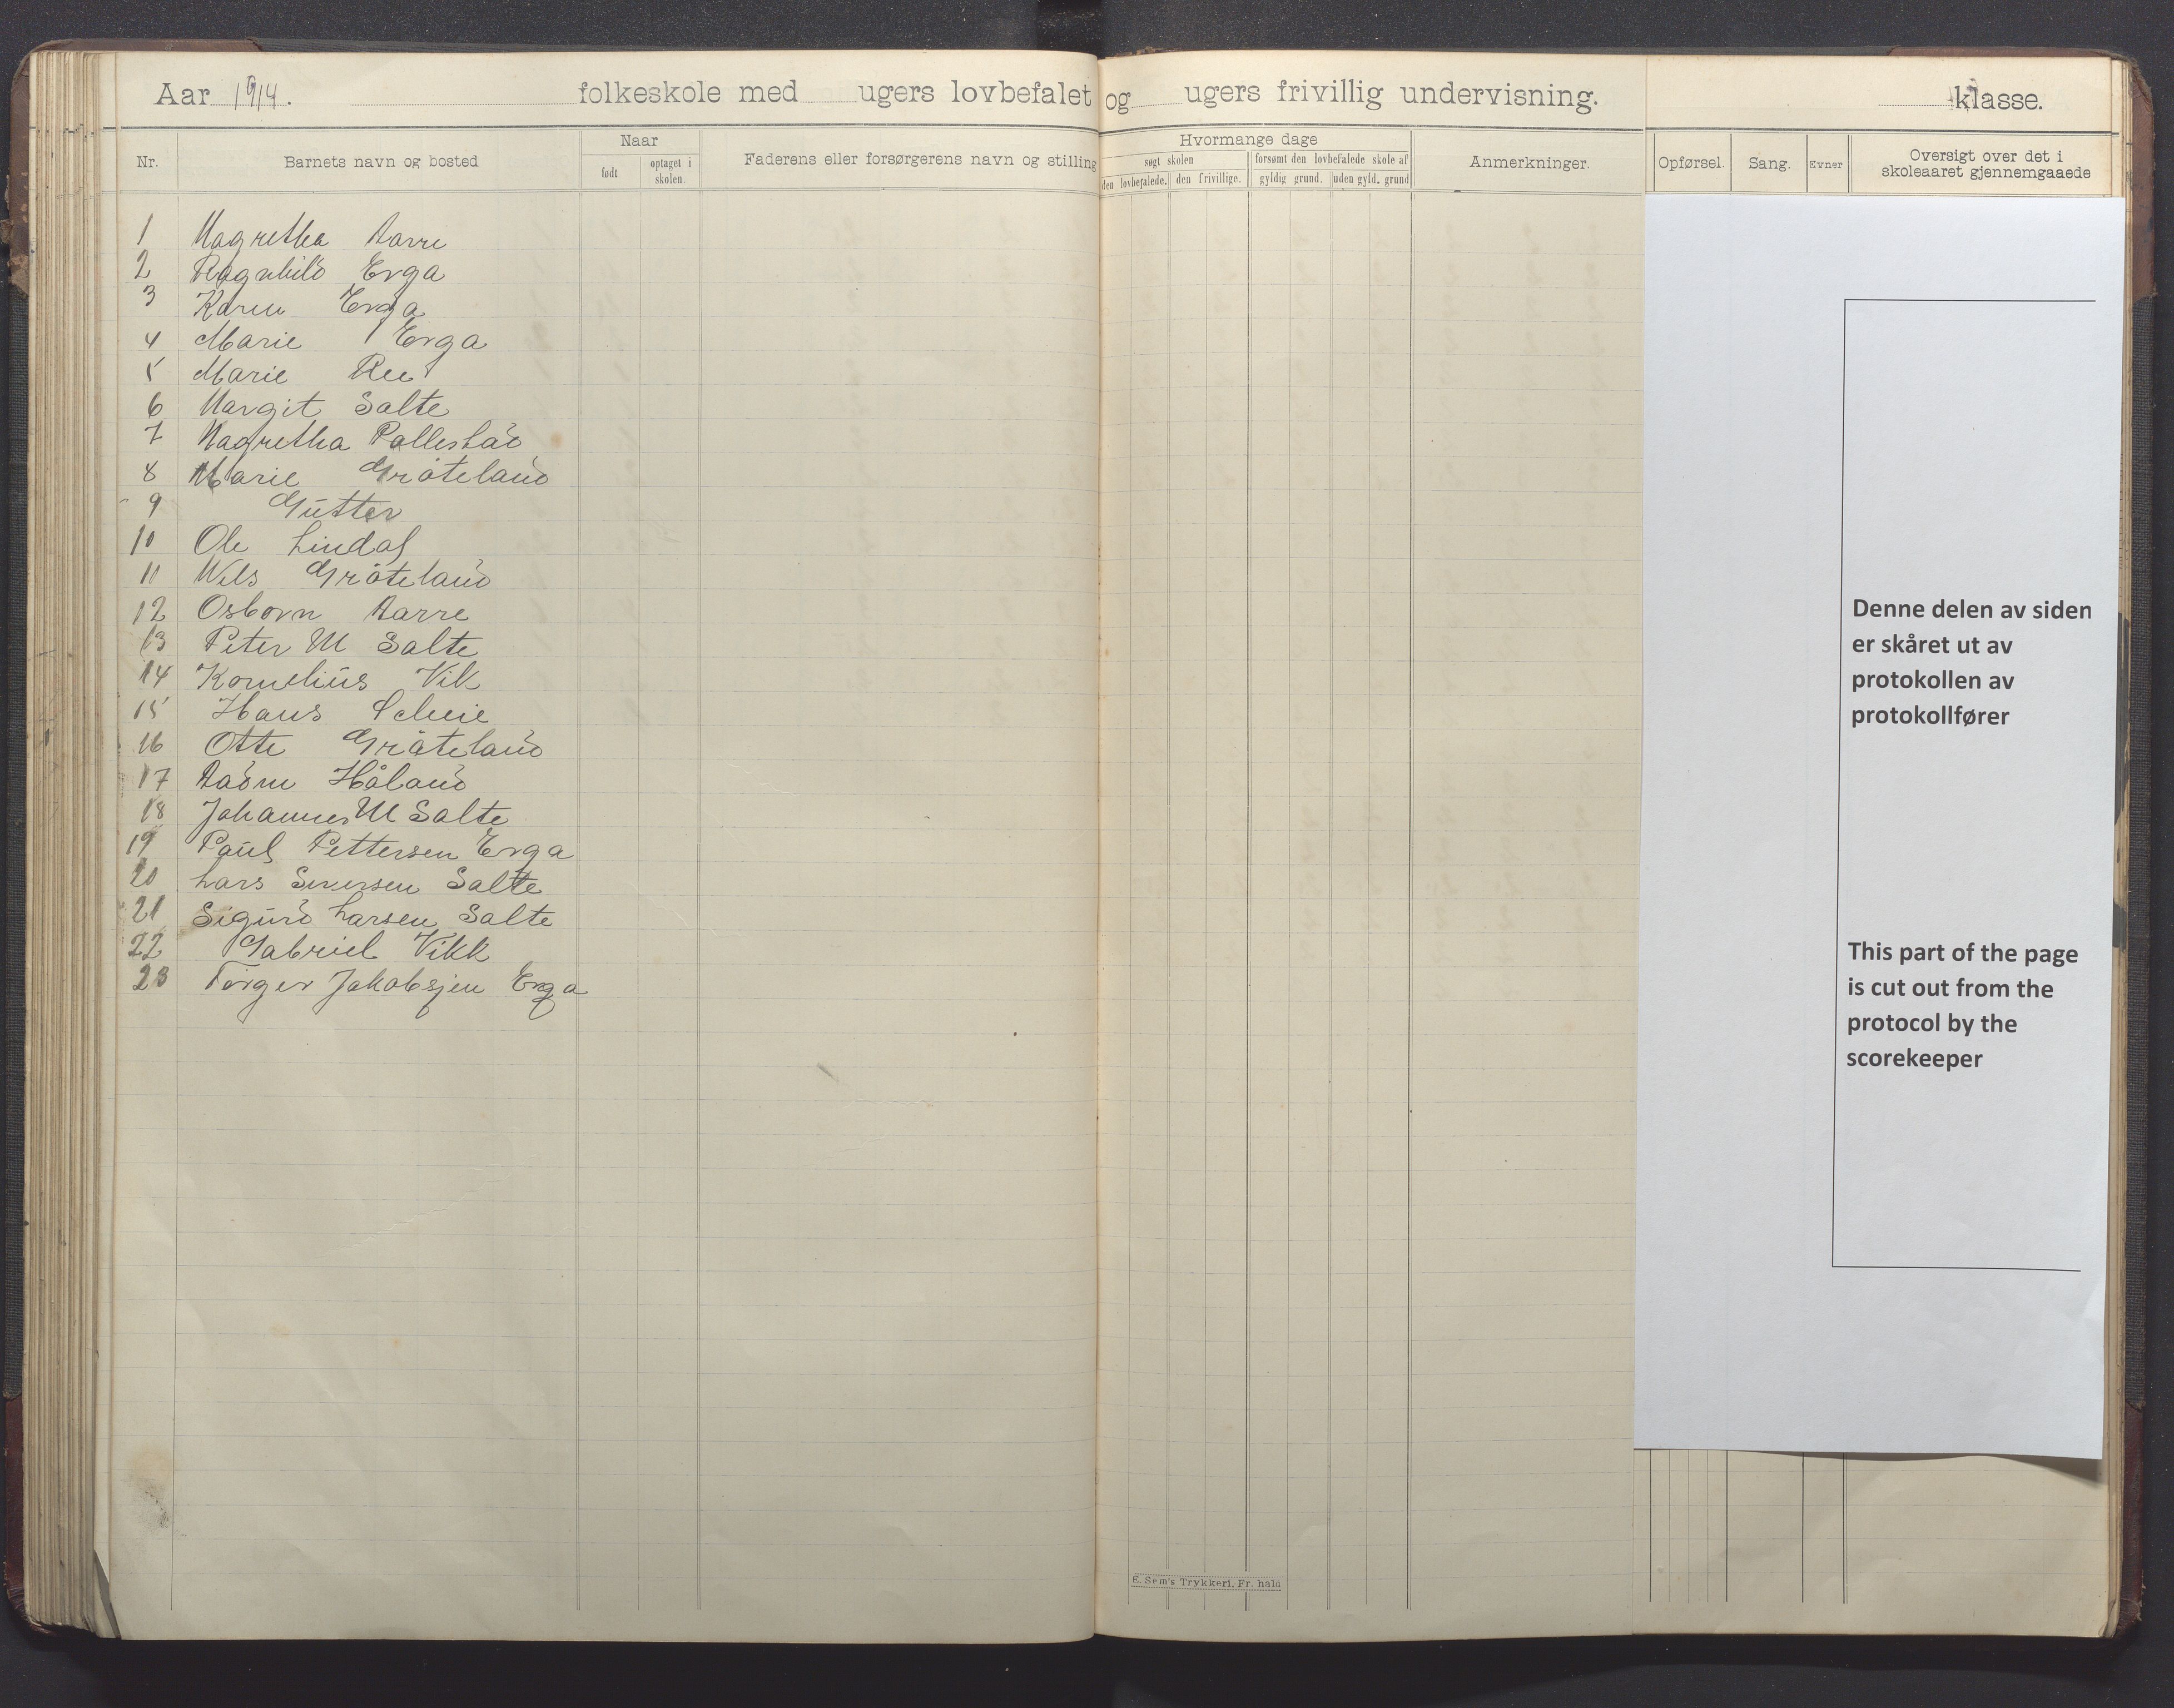 Aar 1914. folkeskole med ugers lovbefalet og ugers frivillig undervisning. klasse.
Nr. Barnets navn og bosted Naar Faderens eller forsørgerens navn og stilling Hvormange dage Anmerkninger. Opførsel. Sang. Evner Oversigt over det i skoleaaret gjennemgaaede
født optaget i skolen. søgt skolen forsømt den lovbefalede skole af
den lovbefalede. den frivillige. gyldig grund. uden gyld. grund
1 Magretha Aarre
2 Ragnhild Erga
3 Karen Erga
4 Marie Erga
5 Marie Ree
6 Margit Salte
7 Magretha Pollestad
8 Marie Gråteland
9 Gutter
10 Ole Lindal
11 Nils Gråteland
12 Osborn Aarre
13 Peter M Salte
14 Kornelius Vik
15 Hans
16 Otte Gråteland
17 Aadne Håland
18 Johannes M Salte
19 Paul Pettersen Erga
20 Lars Siversen Salte
21 Sigurd Larsen Salte
22 Gabriel Vikk
23 Torger Jakobsjen Erga
Denne delen av siden
er skåret ut av
protokollen av
protokollfører
This part of the page
is cut out from the
protocol by the
scorekeeper
E. Sem's Trykkeri, Fr. hald